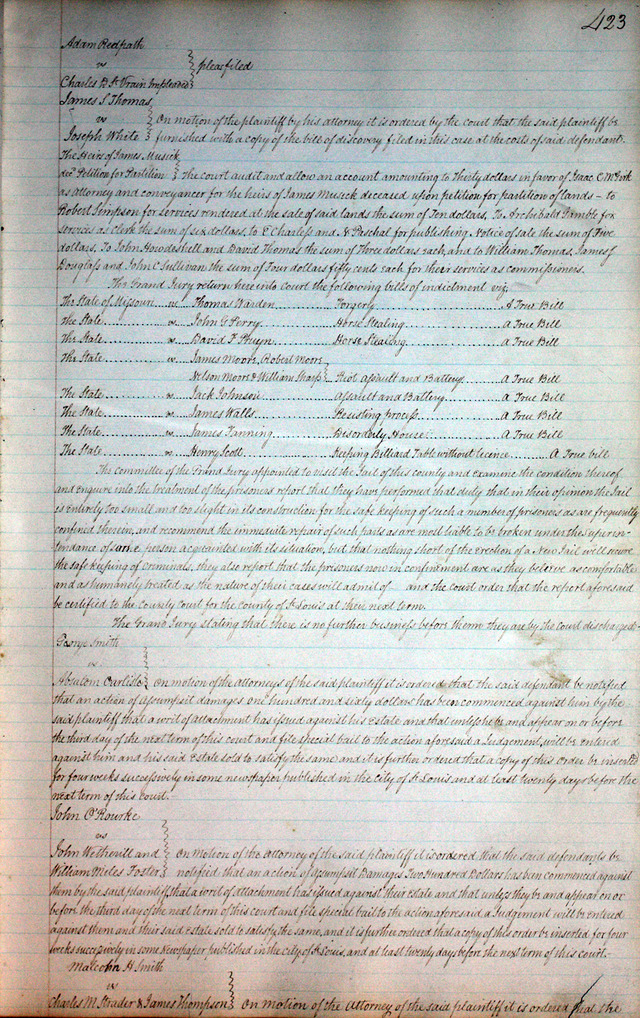 423
Adam Redpath
vs } pleas filed
Charles D St Vrain Impleaded
James S Thomas
vs } On motion of the plaintiff by his attorney it is ordered by the court that the said plaintiff be
Joseph White } furnished with a copy of the bill of discovery filed in this case at the costs of said defendant.
The Heirs of James Musick
decd Petition for Partition } the court audit and allow an account amounting to Thirty dollars in favor of Isaac C McGirk
as attorney and conveyancer for the heirs of James Musick deceased upon petition for partition of lands – to
Robert Simpson for services rendered at the sale of said lands the sum of Ten dollars, To Archibald Gamble for
services as clerk the sum of six dollars, to E Charless and N Paschal for publishing Notice of sale the sum of Five
dollars, To John Howdeshell and David Thomas the sum of Three dollars each, and to William Thomas, James
Douglass and John C Sullivan the sum of Four dollars fifty cents each for their services as commissioners.
The Grand Jury return here into Court the following bills of indictment viz;
The State of Missouri .. vs .. Thomas Warden ........ Forgery ........ A True Bill
The State ........ vs .. John G Perry ........ Horse Stealing ........ A True Bill
The State ........ vs .. David F ........ Horse Stealing ........ A True Bill
The State ........ vs .. James Moore, Robert Moore
Nelson Moore & William Sharp } Riot assault and Battery ........ A True Bill
The State ........ vs .. Jack Johnson ........ Assault and Battery ........ A True Bill
The State ........ vs .. James Walls ........ Resisting process ........ A True Bill
The State ........ vs .. James Fanning ........ Disorderly House ........ A True Bill
The State ........ vs .. Henry Scott ........ Keeping Billiard Table without licence ........ A True bill
The committee of the Grand Jury appointed to visit the Jail of this county and examine the condition thereof
and enquire into the treatment of the prisoners report that they have performed that duty that in their opinion the Jail
is entirely too small and too slight in its construction for the safe keeping of such a number of prisoners as are frequently
confined therein, and recommend the immediate repair of such parts as are most liable to be broken under the superin-
tendance of some person acquainted with its situation, but that nothing short of the erection of a New Jail will secure
the safe keeping of criminals, they also report that the prisoners now in confinement are as they believe as comfortable
and as humanely treated as the nature of their cases will admit of – and the court order that the report aforesaid
be certified to the County Court for the county of St Louis at their next term.
The Grand Jury stating that there is no further business before them they are by the court discharged.
George Smith
vs
Absalom Carlisle } On motion of the attorneys of the said plaintiff it is ordered that the said defendant be notified
that an action of assumpsit damages One hundred and sixty dollars has been commenced against him by the
said plaintiff that a writ of attachment has issued against his Estate and that unless he be and appear on or before
the third day of the next term of this court and file special bail to the action aforesaid a Judgement will be entered
against him and his said Estate sold to satisfy the same and it is further ordered that a copy of this order be inserted
for four weeks successively in some newspaper published in the city of St Louis and at least twenty days before the
next term of this court.
John O'Rourke
vs
John Wetherill and } On motion of the Attorney of the said plaintiff it is ordered that the said defendants be
William Miles Foster } notified that an action of assumpsit Damages Two Hundred Dollars has been commenced against
them by the said plaintiff that a writ of attachment has issued against their Estate and that unless they be and appear on or
before the third day of the next term of this court and file special bail to the action aforesaid a Judgement will be entered
against them and their said Estate sold to satisfy the same, and it is further ordered that a copy of this order be inserted for four
weeks successively in some Newspaper published in the city of St Louis, and at least twenty days before the next term of this court.
Malcolm H Smith
vs
Charles M Strader & James Thompson } On motion of the Attorney of the said plaintiff it is ordered that the